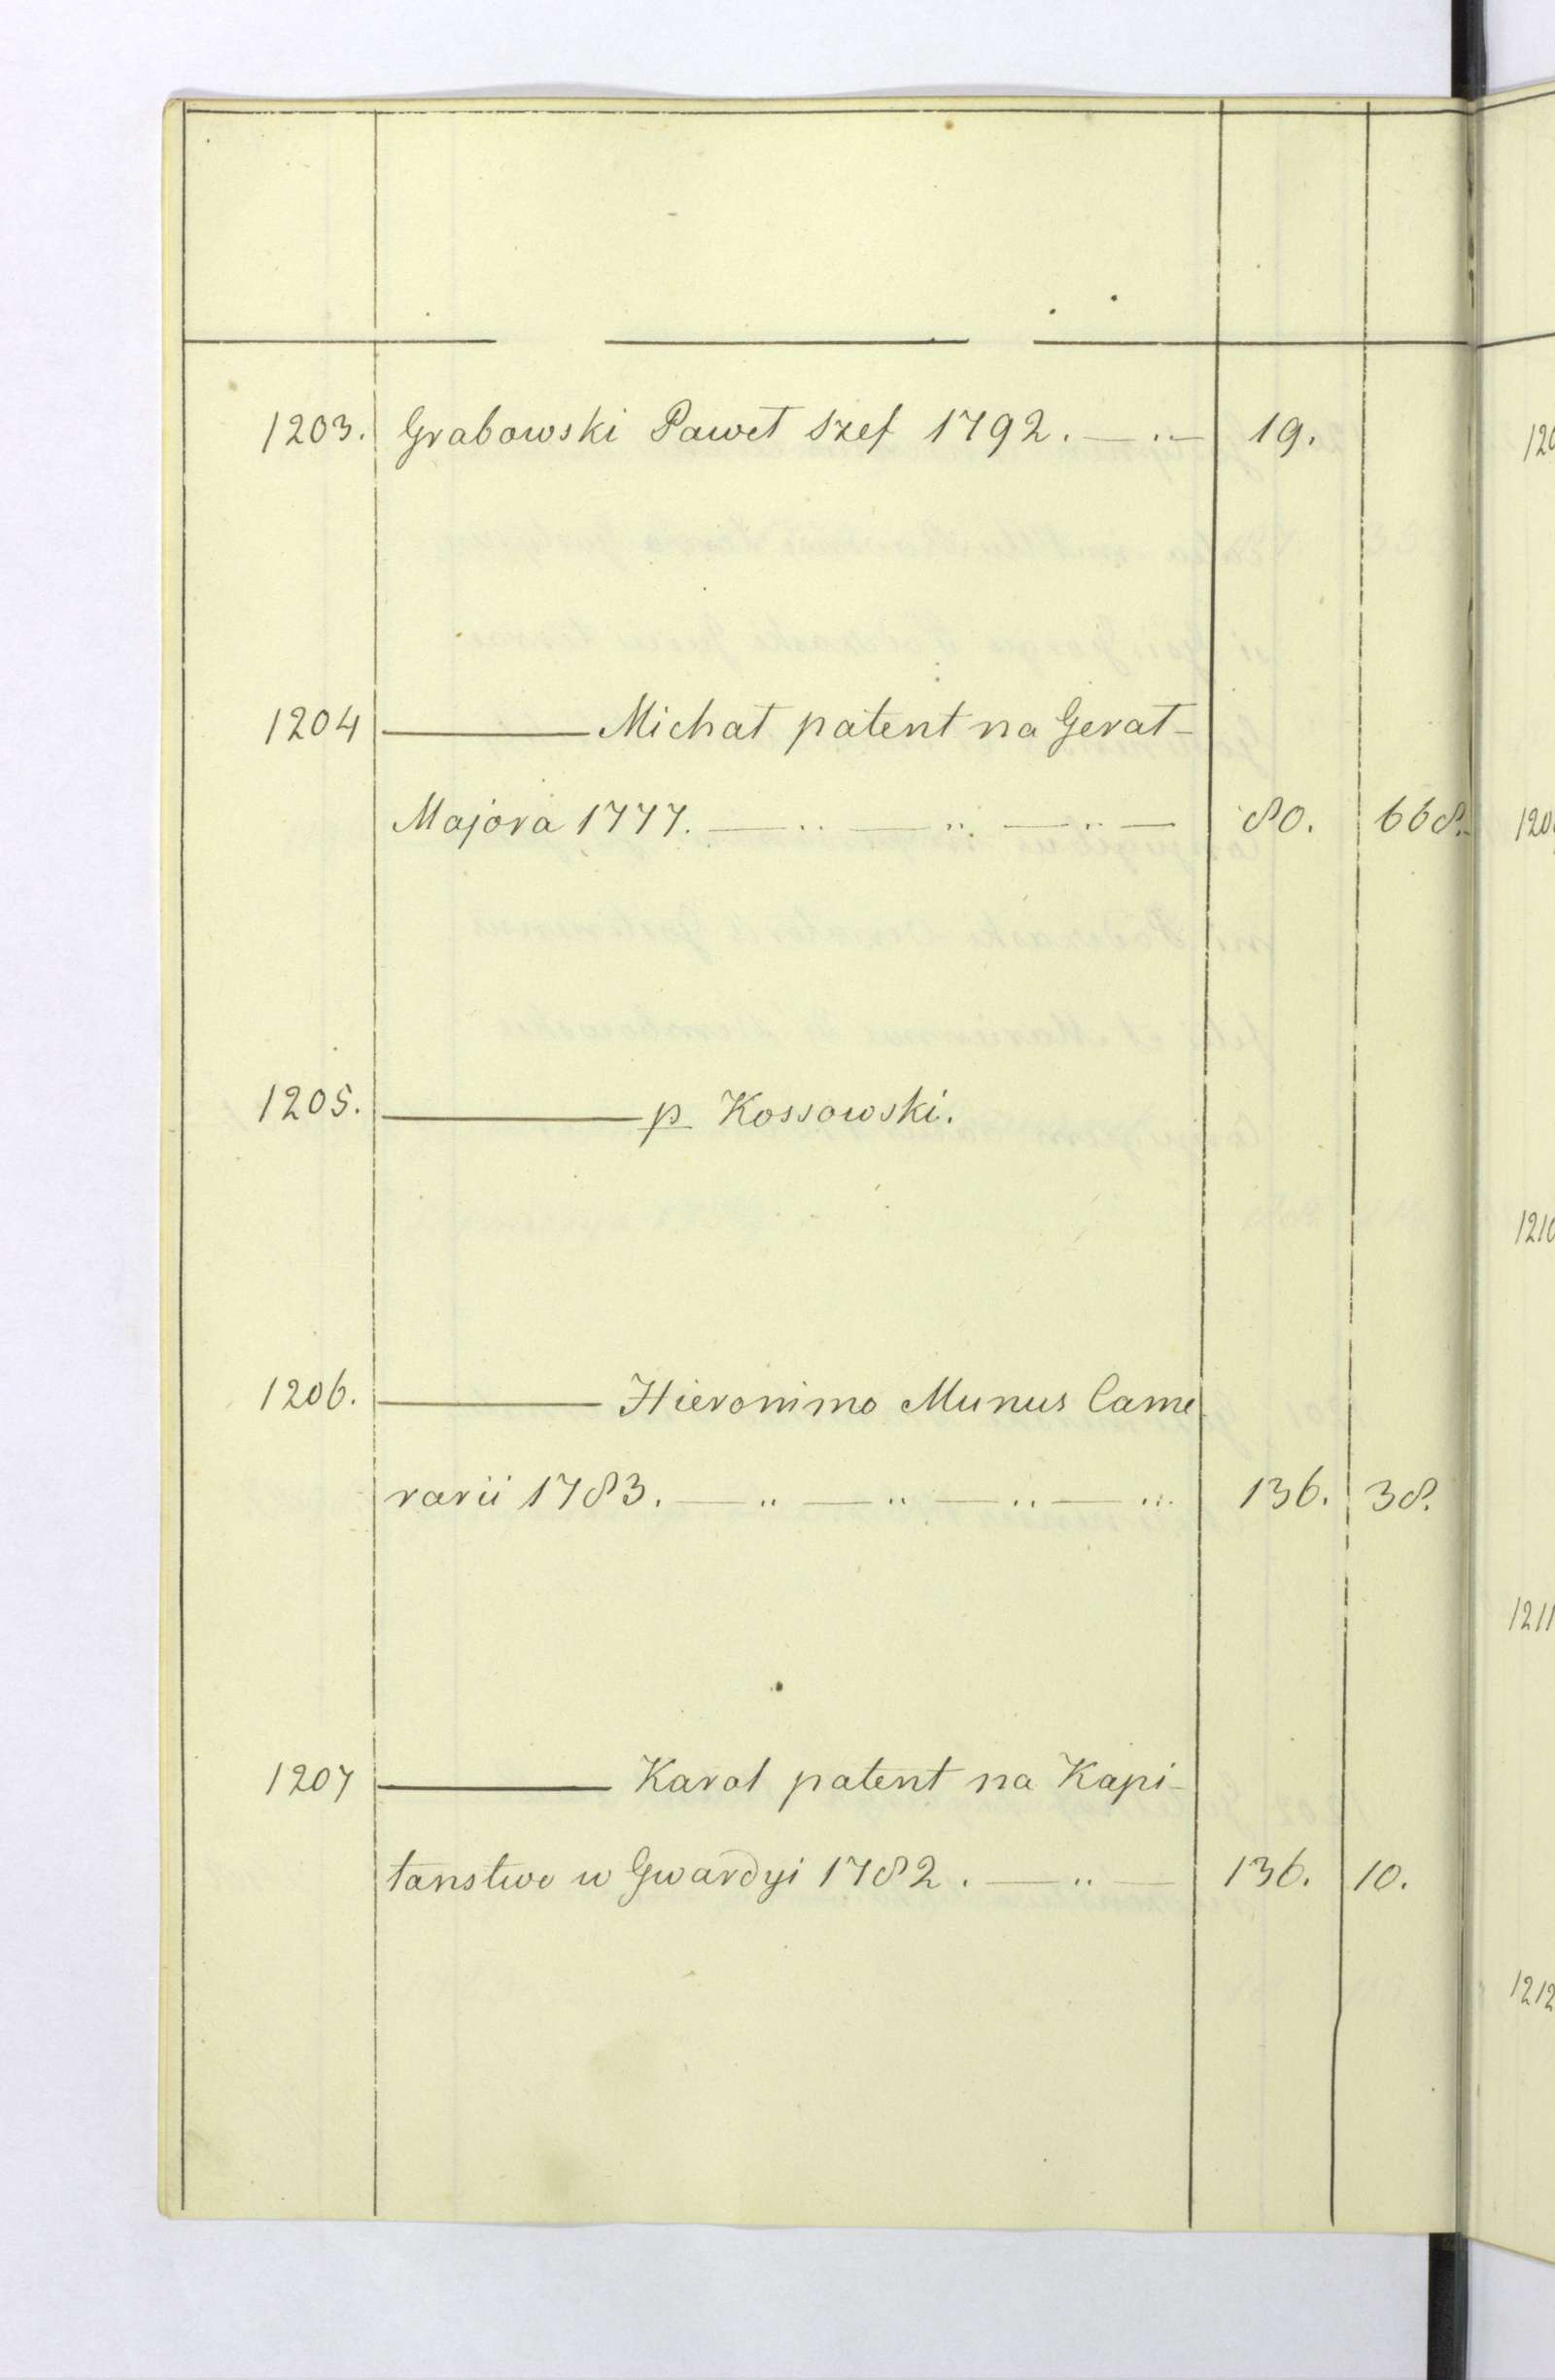 1203. Grabowski Paweł Szef 1792. — .. — 19.
1204 ——— Michał patent na Gerał-
Majora 1777. — .. — .. — .. — 80. 668.
1205. ——— p Kossowski.
1206. ——— Hieronimo Munus Came
rarii 1783. — .. — .. — .. — .. 136. 38.
1207 ——— Karol patent na Kapi-
tanstwo w Gwardyi 1782. — .. — 136. 10.
1210
1211
1212